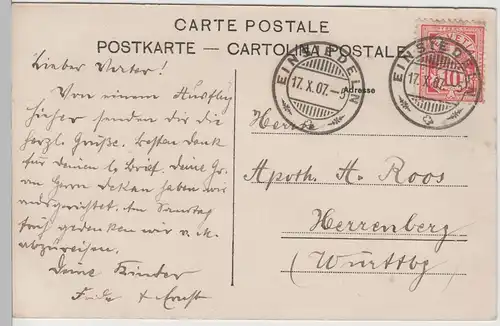 CARTE POSTALE
POSTKARTE — CARTOLINA POSTALE.
EINSIEDELN
17.X.07.-5
EINSIEDELN
17.X.07.
10
Adresse
Lieber Vater!
Von einem Ausflug
hieher senden dir die
herzl. Grüße. Besten Dank
für deinen l. Brief. Deine Gr.
an Herrn Dekan haben wir
ausgerichtet. Am Samstag
früh gedenken wir v. M.
abzureisen.
Deine Kinder
Frida & Ernst
Herrn
Apoth. A. Roos
Herrenberg
(Württbg)